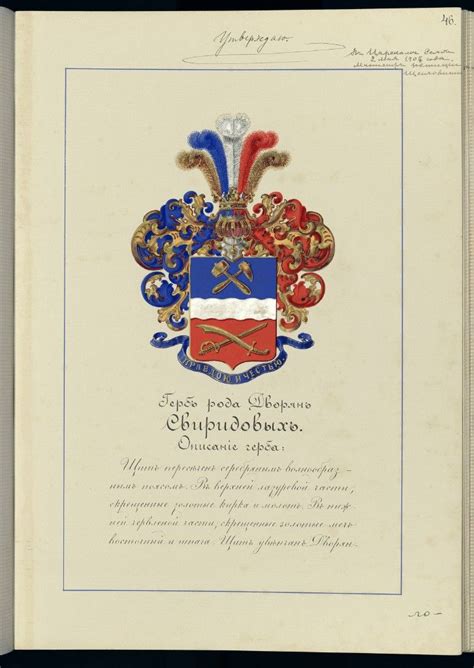 46.
Утверждаю.
Въ Царскомъ Селѣ
2 Мая 1908 года.
Министръ Юстиціи
Щегловитовъ
ПРАВДОЮ И ЧЕСТЬЮ.
Гербъ рода Дворянъ
Свиридовыхъ.
Описаніе герба:
Щитъ пересѣченъ серебрянымъ волнообраз-
нымъ поясомъ. Въ верхней лазуревой части,
скрещенные золотые кирка и молотъ. Въ ниж-
ней червленой части, скрещенные золотые мечъ
восточный и шпага. Щитъ увѣнчанъ Дворян-